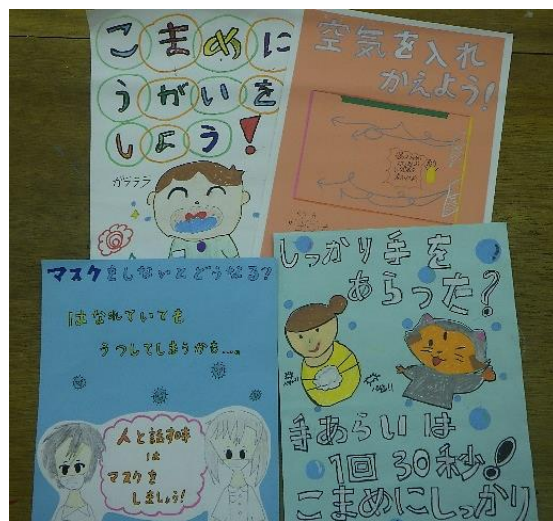 こまめに
うがいを
しよう!
ガラララ
空気を入れ
かえよう!
マスクをしないとどうなる?
はなれていても
うつしてしまうかも…。
人と話す時
は
マスクを
しましょう!
しっかり手を
あらった?
手あらいは
1回30秒!
こまめにしっかり